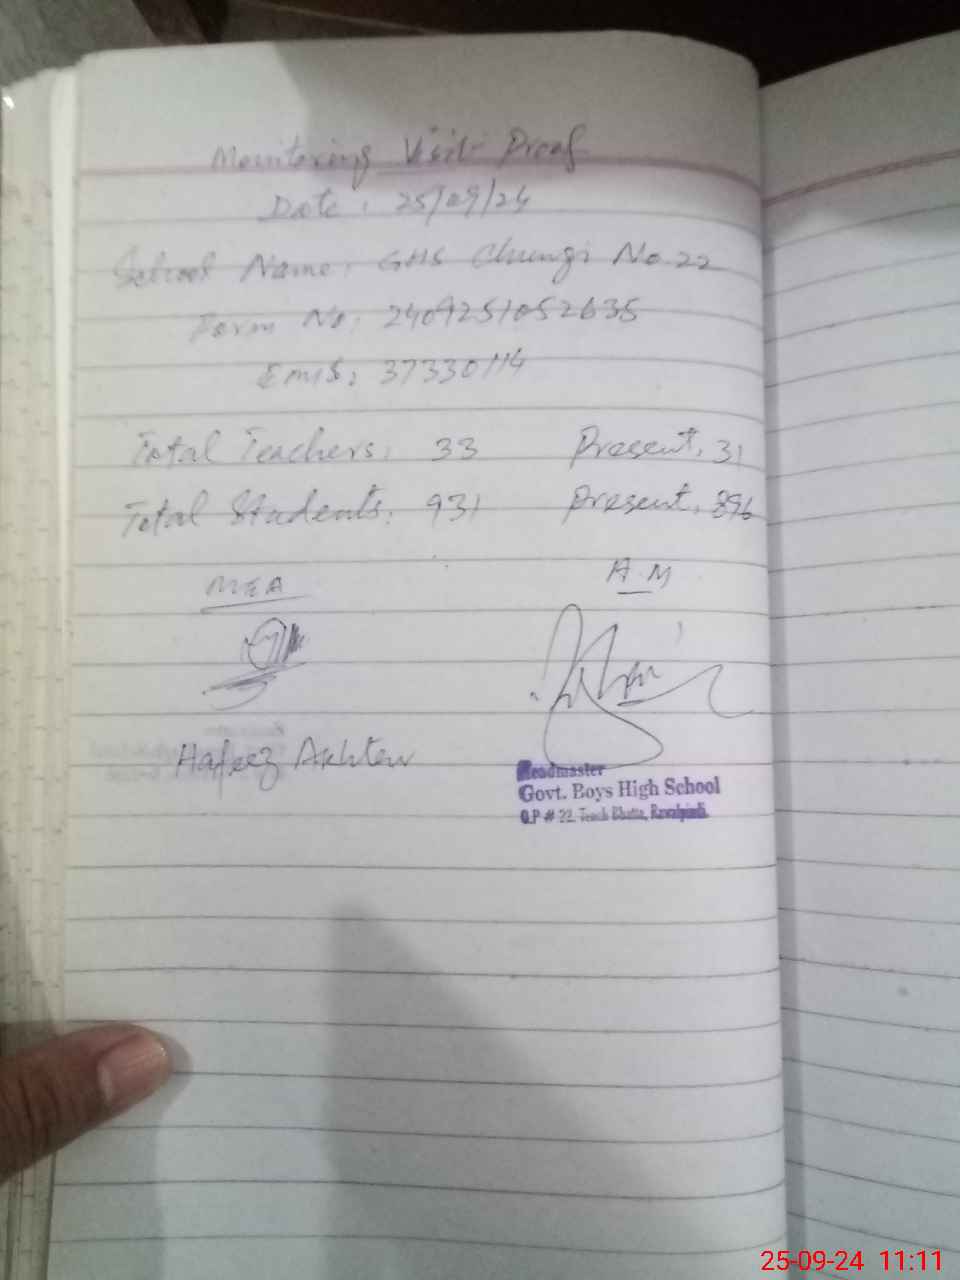 Monitoring Visit Proof
Date: 25/09/24
School Name: GHS Chungi No. 22
Form No: 2409251052635
Emis: 37330114
Total Teachers: 33 Present. 31
Total Students: 931 Present. 896
MEA A.M
Hafeez Akhter
Headmaster
Govt. Boys High School
O.P # 22, Tench Bhatta, Rawalpindi.
25-09-24 11:11